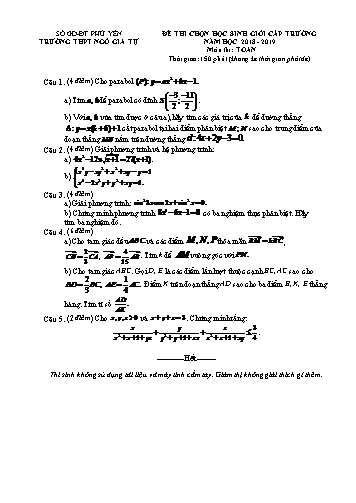 SỞ GD-ĐT PHÚ YÊN
TRƯỜNG THPT NGÔ GIA TỰ
ĐỀ THI CHỌN HỌC SINH GIỎI CẤP TRƯỜNG
NĂM HỌC 2018 - 2019
Môn thi: TOÁN
Thời gian: 150 phút (không kể thời gian phát đề)
Câu 1. (4 điểm) Cho parabol (P): y=ax²+bx-1.
a) Tìm a, b để parabol có đỉnh S(-3/2; -11/2).
b) Với a, b vừa tìm được ở câu a), hãy tìm các giá trị của k để đường thẳng
Δ: y=x(k+6)+1 cắt parabol tại hai điểm phân biệt M; N sao cho trung điểm của
đoạn thẳng MN nằm trên đường thẳng d: 4x+2y-3=0.
Câu 2. (4 điểm) Giải phương trình và hệ phương trình:
Câu 3. (4 điểm)
a) Giải phương trình:
b) Chứng minh phương trình 8x³-6x-1=0 có ba nghiệm thực phân biệt. Hãy
tìm ba nghiệm đó.
Câu 4. (4 điểm)
a) Cho tam giác đều ABC và các điểm M, N, P thỏa mãn
Tìm k để AM vuông góc với PN.
b) Cho tam giác ABC. Gọi D, E là các điểm lần lượt thuộc cạnh BC, AC sao cho
Điểm K trên đoạn thẳng AD sao cho ba điểm B, K, E thẳng
hàng. Tìm tỉ số
Câu 5. (2 điểm) Cho x, y, z>0 và x+y+z=3. Chứng minh rằng:
Hết
Thí sinh không sử dụng tài liệu và máy tính cầm tay. Giám thị không giải thích gì thêm.